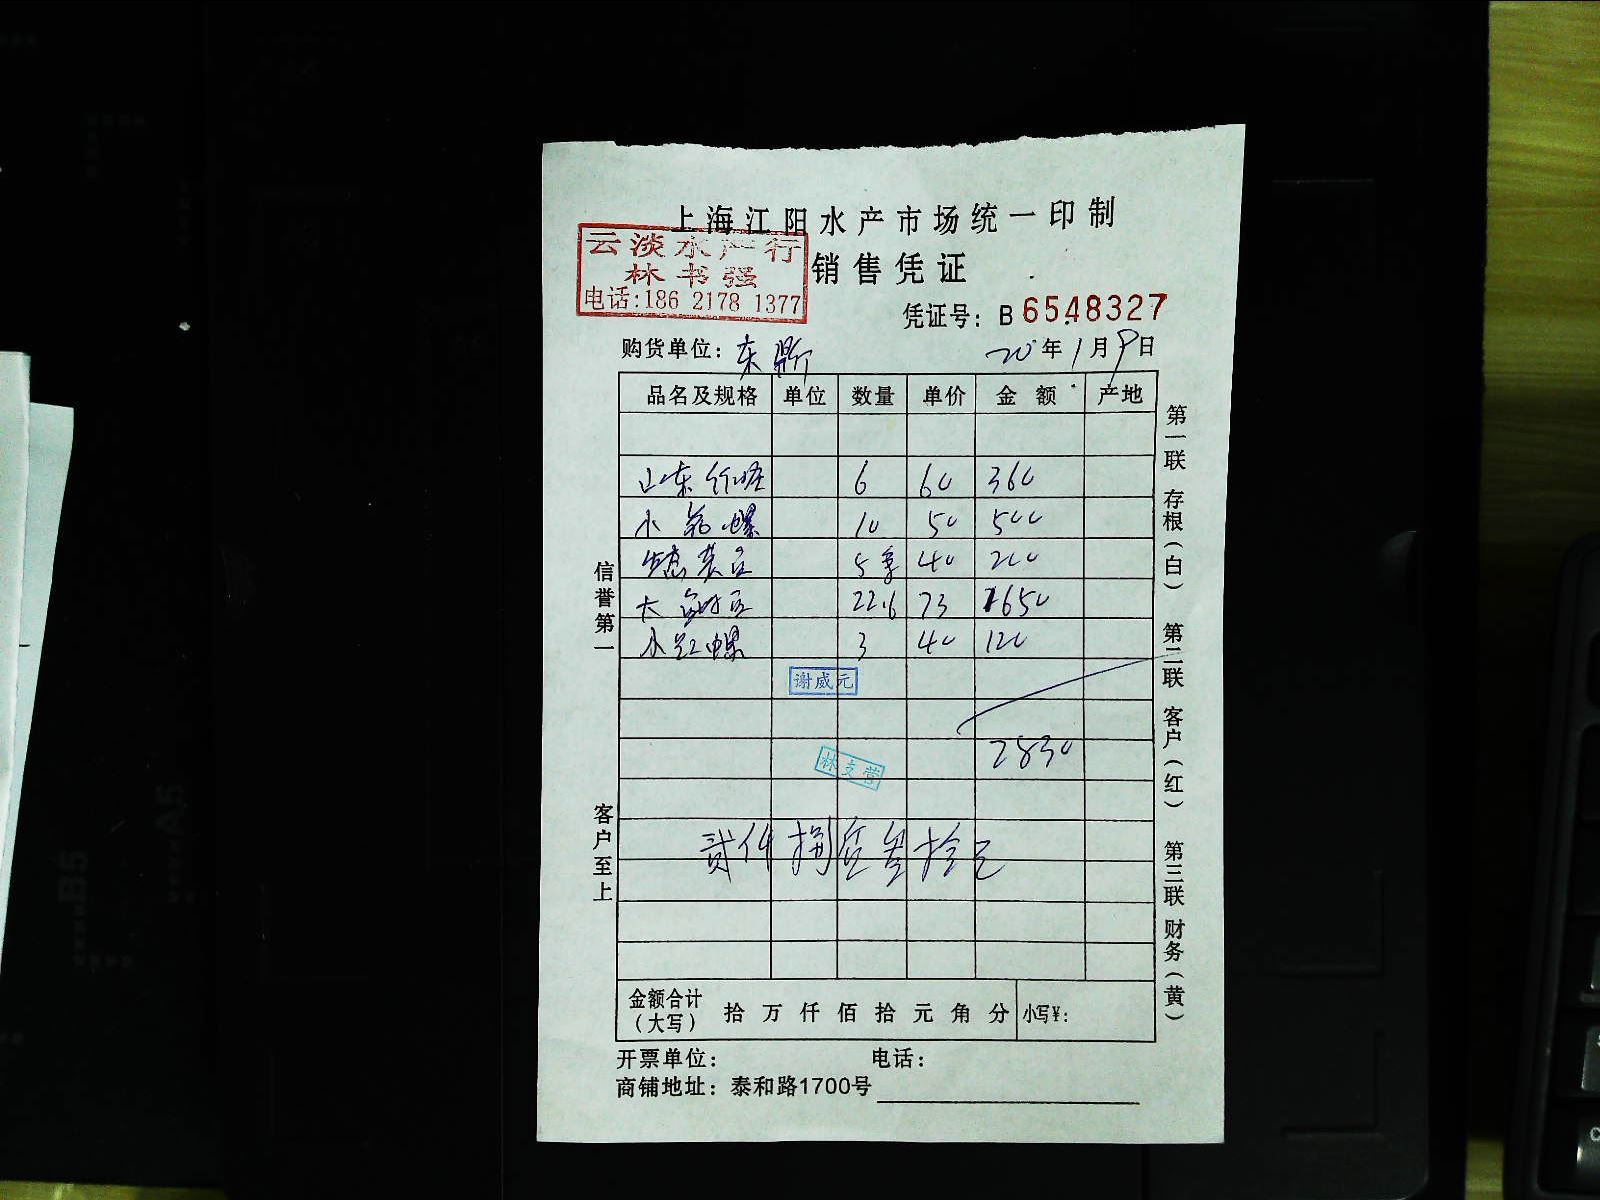 上海江阳水产市场统一印制
云淡水产行
林书强
电话:186 2178 1377
销售凭证
凭证号: B 6548327
购货单位: 东鼎 20年1月9日
品名及规格 单位 数量 单价 金额 产地
山东 6 60 360
小 螺 10 50 500
5 40 200
大 22.6 73 1650
小红螺 3 40 120
谢威元
2830
林支营
贰仟捌佰叁拾元
金额合计(大写) 拾 万 仟 佰 拾 元 角 分 小写¥:
开票单位: 电话:
商铺地址: 泰和路1700号
信誉第一
客户至上
第一联 存根(白) 第二联 客户(红) 第三联 财务(黄)
B5
A5